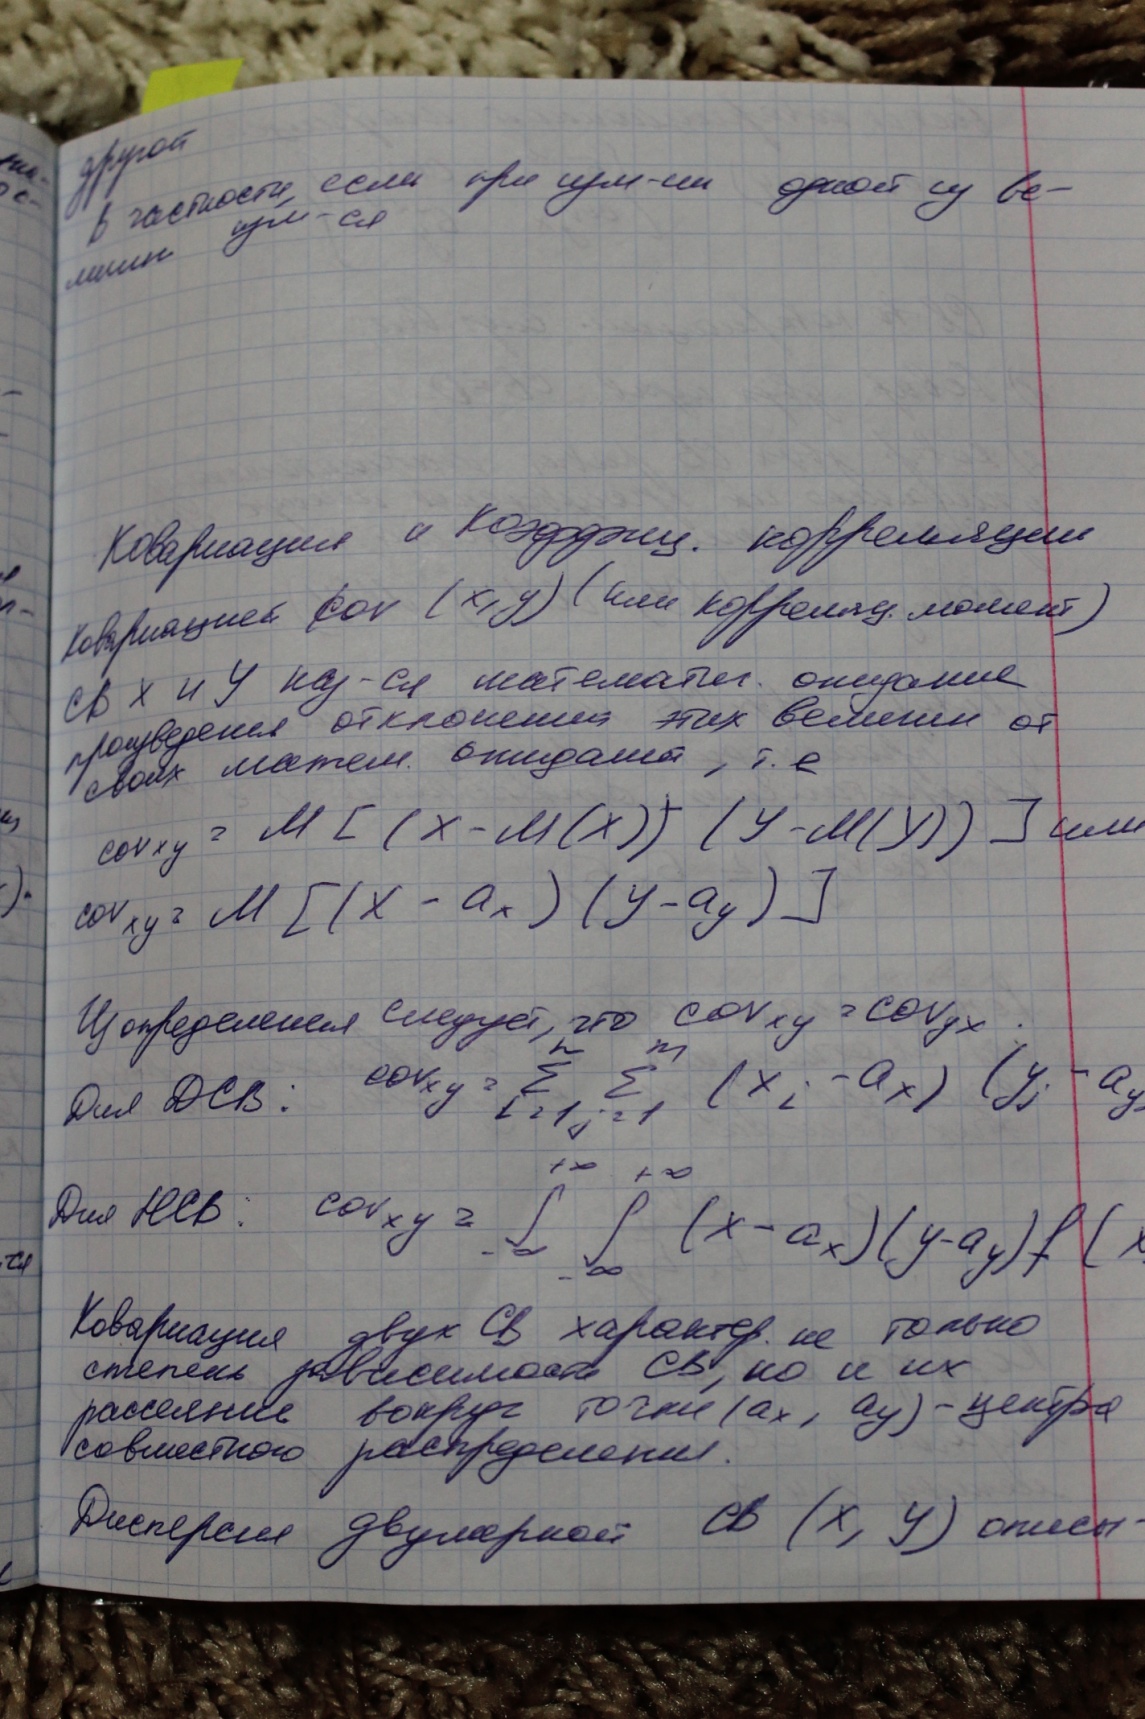 другой
В частности, если при изм-ии одной из ве-
личин изм-ся
Ковариация и Коэффиц. корреляции
Ковариацией Cov (x, y) (или корреляц. момент)
СВ X и Y наз-ся математич. ожидание
произведения отклонений этих величин от
своих матем. ожиданий, т.е
cov xy = M [ (X - M(X)) (Y - M(Y)) ] или
cov xy = M [(X - a x) (Y - a y)]
Из определения следует, что cov xy = cov yx.
Для ДСВ: cov xy = n Σ i=1 m Σ j=1 (x i - a x) (y j - a y
Для НСВ: cov xy = +∞ ∫ -∞ +∞ ∫ -∞ (x - a x)(y - a y) f (x
Ковариация двух СВ характер. не только
степень зависимости СВ, но и их
рассеяние вокруг точки (a x, a y) - центра
совместного распределения.
Дисперсия двумерной СВ (X, Y) описы-